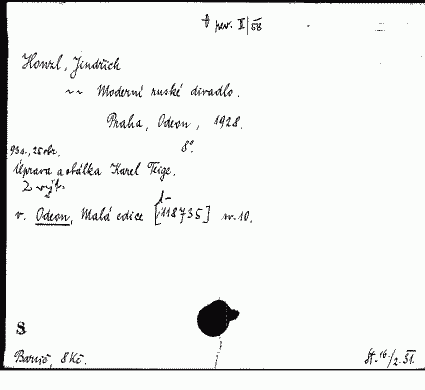 rev. II/58
Honzl, Jindřich
~~ Moderní ruské divadlo.
Praha, Odeon, 1928.
93 s., 25 obr. 8°.
Úprava a obálka Karel Teige.
2 výt.
v. Odeon, Malá edice [118735] sv. 10.
8
8 Kč. 16/2.31.